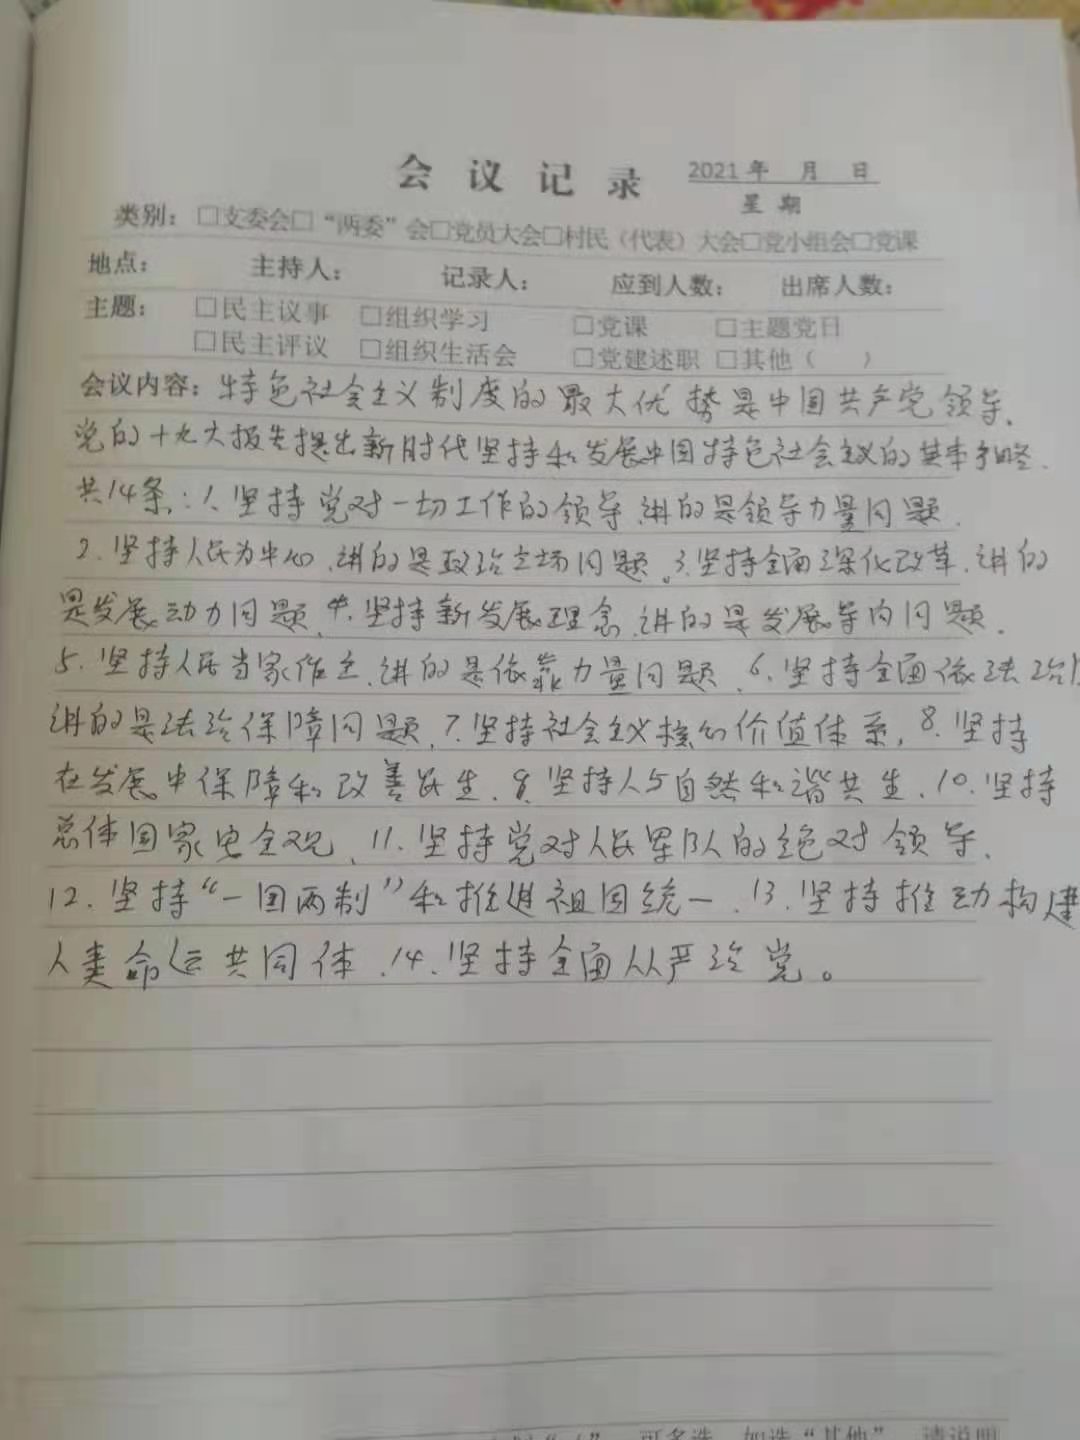 会 议 记 录
2021 年 月 日
星 期
类别：□支委会□“两委”会□党员大会□村民（代表）大会□党小组会□党课
地点： 主持人： 记录人： 应到人数： 出席人数：
主题： □民主议事 □组织学习 □党课 □主题党日
□民主评议 □组织生活会 □党建述职 □其他（ ）
会议内容：特色社会主义制度的最大优势是中国共产党领导.
党的十九大报告提出新时代坚持和发展中国特色社会主义的基本方略.
共14条：1.坚持党对一切工作的领导.讲的是领导力量问题.
2.坚持人民为中心.讲的是政治立场问题.3.坚持全面深化改革.讲的
是发展动力问题.4.坚持新发展理念.讲的是发展导向问题.
5.坚持人民当家作主.讲的是依靠力量问题.6.坚持全面依法治
讲的是法治保障问题.7.坚持社会主义核心价值体系,8.坚持
在发展中保障和改善民生.9.坚持人与自然和谐共生.10.坚持
总体国家安全观.11.坚持党对人民军队的绝对领导.
12.坚持“一国两制”和推进祖国统一.13.坚持推动构建
人类命运共同体.14.坚持全面从严治党。
可多选 如选“其他” 请说明